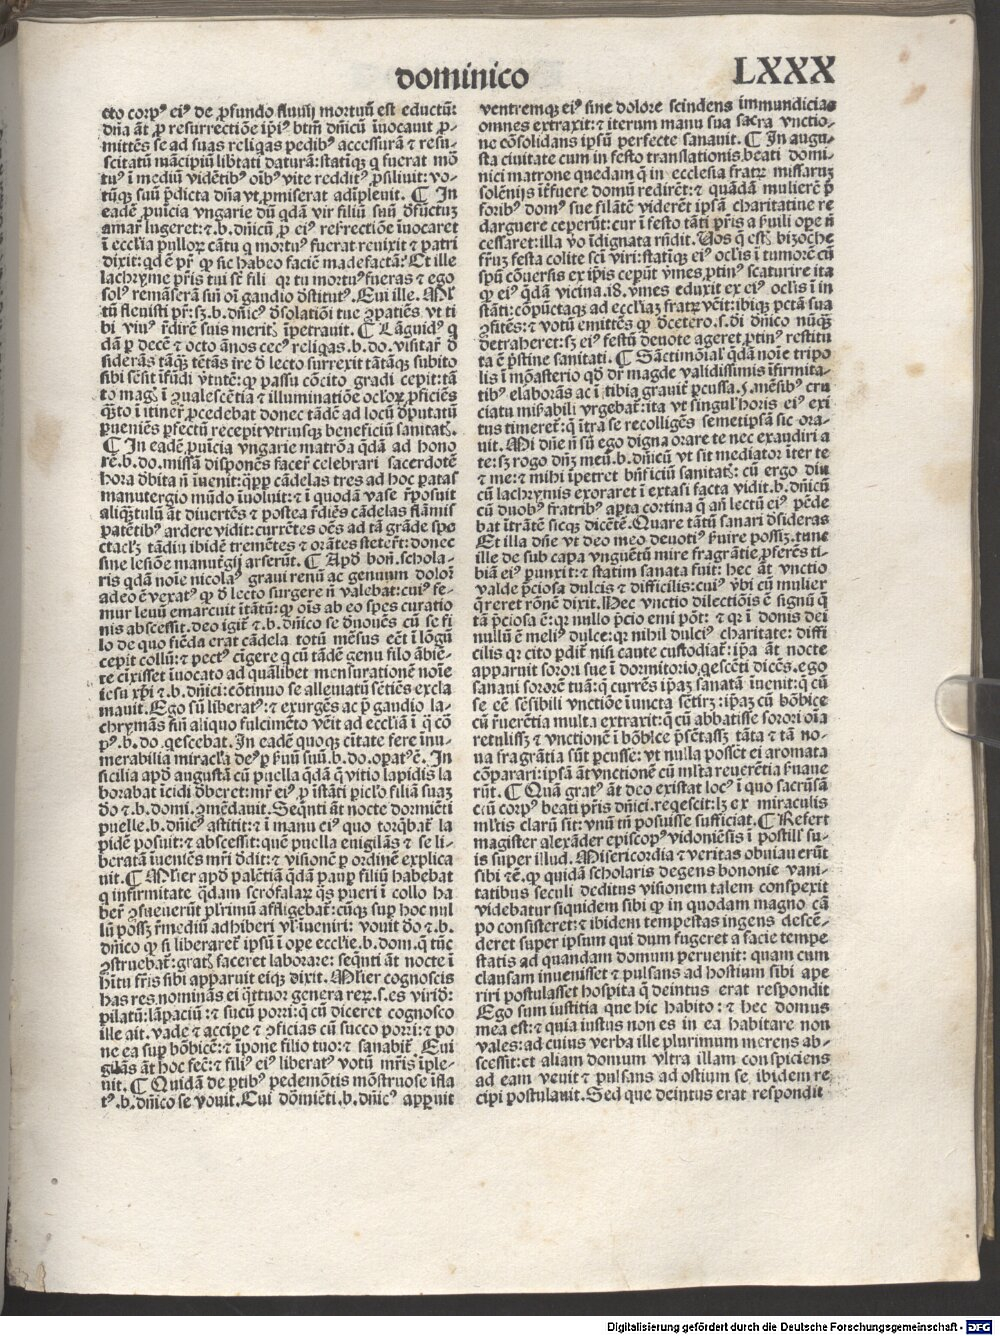 dominico
LXXX
cto corpꝰ eiꝰ de ꝓfundo fluuij mortuū est eductū:
dn̄a āt ꝓ resurrectiōe ip̄iꝰ btm̄ dn̄icū īuocauit ꝓ-
mittēs se ad suas reliq̄as pedibꝰ accessurā ⁊ resu-
scitatū mācipiū lib̄tati daturā: statiqꝫ q fuerat mō
tuꝰ ī mediū vidētibꝰ oībꝰ vite redditꝰ ꝓsiliuit: vo-
tūqꝫ suū p̄dicta dn̄a vt ꝓmiserat adīpleuit. ¶ In
eadē ꝓuīcia vngarie dū qdā vir filiū suū d̄fūctuꝫ
amar̄ lugeret: ⁊.b.dn̄icū ꝓ eiꝰ resr̄rectiōe īuocaret
ī eccl̄ia pulloꝝ cātu q mortuꝰ fuerat reuixit ⁊ patri
dixit: qd ē pr̄ ꝙ sic habeo faciē madefactā? Et ille
lachryme pr̄is tui st̄ fili qr tu mortuꝰ fueras ⁊ ego
solꝰ remāserā sin̄ oī gaudio d̄stitutꝰ. Cui ille. Ml̄
tū fleuisti pr̄: sꝫ.b.dn̄icꝰ d̄solatiōi tue ꝯpatiēs vt ti
bi viuꝰ r̄dirē suis meritꝭ īpetrauit. ¶ Lāguidꝰ q
dā p decē ⁊ octo ānos cecꝰ reliqas.b.do.visitar̄ d̄
siderās tāqꝫ tētās ire d̄ lecto surrexit tātāqꝫ subito
sibi sēsit īfūdi ꝟtutē: ꝙ passu cōcito gradi cepit: tā
to magꝭ ī ꝯualescētia ⁊ illuminatiōe ocl̄oꝝ ꝓficiēs
q̄ꝫto ī itiner̄ ꝓcedebat donec tādē ad locū d̄putatū
ꝑueniēs ꝑfectū recepit vtriusqꝫ beneficiū sanitatꝭ.
¶ In eadē ꝓuīcia vngarie matrōa qdā ad hono
rē.b.do.missā disponēs facer̄ celebrari sacerdotē
hora d̄bita n̄ īuenit: qꝓp cādelas tres ad hoc ꝑatas
manutergio mūdo īuoluit: ⁊ ī quodā vase r̄posuit
aliqꝫtulū āt diuertēs ⁊ postea r̄diēs cādelas flāmis
patētibꝰ ardere vidit: currētes oēs ad tā grāde spe
ctacl̄ꝫ tādiu ibidē tremētes ⁊ orātes steter̄t: donec
sine lesiōe manut̄gij arserūt. ¶ Apd̄ bon̄.schola-
ris qdā noīe nicolaꝰ graui renū ac genuum dolor̄
adeo ē vexatꝰ ꝙ d̄ lecto surgere n̄ valebat: cuiꝰ fe-
mur leuū emarcuit ītātū: ꝙ oīs ab eo spes curatio
nis abscessit. deo igit̄ ⁊.b.dn̄ico se d̄uouēs cū se fi
lo de quo fiēda erat cādela totū mēsus eēt ī lōgū
cepit collū: ⁊ pectꝰ cīgere q cū tādē genu filo ābiē-
te cīxisset īuocato ad quālibet mensurationē noīe
iesu xp̄i ⁊.b.dn̄ici: cōtinuo se alleuiatū sētiēs excla
mauit. Ego sū liberatꝰ: ⁊ exurgēs ac p̄ gaudio la-
chrymās sin̄ aliquo fulcimēto vēit ad eccl̄iā ī q̄ cō
pꝰ.b.do q̄escebat. In eadē quoqꝫ cītate fere īnu-
merabilia miracl̄a deꝰ p k̄uū suū.b.do.oꝑatꝰ ē. In
sicilia apd̄ augustā cū puella qdā q̄ vitio lapidis la
borabat īcidi d̄beret: mr̄ eiꝰ p īstāti picl̄o filiā suaꝫ
d̄o ⁊.b.domi.ꝯmēdauit. Seqn̄ti āt nocte dormiēti
puelle.b.dn̄icꝰ astitit: ⁊ ī manu eiꝰ quo torq̄bat̄ la
pidē posuit: ⁊ abscessit: quē puella euigilās ⁊ se li-
beratā īueniēs mr̄i d̄dit: ⁊ visionē p ordinē explica
uit. ¶ Ml̄ier apd̄ palētiā qdā pauꝑ filiū habebat
q infirmitate q̄dam scrofalaꝝ q̄s pueri ī collo ha
ber̄ ꝯsueuerūt pl̄rimū affligebat̄: cūqꝫ suꝑ hoc nul
lū possꝫ r̄mediū adhiberi vl̄ īueniri: vouit d̄o ⁊.b.
dn̄ico ꝙ si liberaret̄ ipsū ī ope eccl̄ie.b.dom.q tūc
ꝯstruebat̄: gratꝭ faceret laborare: seqn̄ti āt nocte ī
hītu fr̄is sibi apparuit eiqꝫ dixit. Ml̄ier cognoscis
has res nominās ei q̄ttuor genera reꝝ.s.es virid̄:
pilatū: lāpaciū: ⁊ sucū porri: q cū diceret cognosco
ille ait. vade ⁊ accipe ⁊ ꝯficias cū succo porri: ⁊ po
ne ea suꝑ bōbicē: ⁊ īpone filio tuo: ⁊ sanabit̄. Eui
gilās āt hoc fec̄: ⁊ filiꝰ eiꝰ liberatꝰ votū mr̄is īple-
uit. ¶ Quidā de ꝑtibꝰ pedemōtis mōstruose īfla
tꝰ.b.dn̄ico se vouit. Cui dōmiēti.b.dn̄icꝰ apꝑuit
ventremqꝫ eiꝰ sine dolore scindens immundicias
omnes extraxit: ⁊ iterum manu sua sacra vnctio-
ne cōsolidans ipsū perfecte sanauit. ¶ In augu-
sta ciuitate cum in festo translationis beati domi-
nici matrone quedam q̄ in ecclesia fratꝝ missaruꝫ
solēnijs īt̄fuere domū redirēt: ⁊ quādā mulierē p̄
foribꝰ domꝰ sue filātē viderēt ipsā charitatiue re
darguere ceperūt: cur ī festo tāti pr̄is a k̄uili oꝑe n̄
cessaret: illa ꝟo īdignata rn̄dit. Uos q̄ estꝭ bizoche
fr̄uꝫ festa colite sc̄i viri: statiqꝫ eiꝰ ocl̄is ī tumorē cū
spū cōuersis ex ip̄is cepūt ꝟmes ꝓtinꝰ scaturire ita
ꝙ eiꝰ qdā vicina.18.ꝟmes eduxit ex eiꝰ ocl̄is ī in
stāti: cōpūctaqꝫ ad eccl̄iaꝫ fratꝝ vēit: ibiqꝫ pctā sua
ꝯfitēs: ⁊ votū emittēs ꝙ d̄cetero.s.d̄i dn̄ico nūqꝫ
detraheret: sꝫ eiꝰ festū deuote ageret ꝓtinꝰ restitu
ta ē pristine sanitati. ¶ Sāctimōial̄ q̄dā noīe tripo
lis ī mōasterio qd̄ dr̄ magde validissimis īfirmita-
tibꝰ elaborās ac ī tibia grauit̄ ꝑcussa.5.mēsibꝰ cru
ciatu mirabili vrgebat̄: ita vt singul̄ horis eiꝰ exi
tus timeret̄: q ītra se recolligēs semetipsā sic ora-
uit. Mi dn̄e n̄ sū ego digna orare te nec exaudiri a
te: sꝫ rogo dn̄ꝫ meū.b.dn̄icū vt sit mediator īter te
⁊ me: ⁊ mihi īpetret bn̄ficiū sanitatꝭ: cū ergo diu
cū lachrymis exoraret ī extasi facta vidit.b.dn̄icū
cū duobꝰ fratribꝰ apꝑta cortina q̄ an̄ lectū eiꝰ pēde
bat ītrātē sicqꝫ dicētē. Quare tātū sanari d̄sideras
Et illa dn̄e vt deo meo deuotiꝰ k̄uire possiꝫ. tunc
ille de sub capa vnguētū mire fragrātie ꝓferēs ti-
biā eiꝰ ꝑunxit: ⁊ statim sanata fuit: hec āt vnctio
valde p̄ciosa dulcis ⁊ difficilis: cuiꝰ ꝟbi cū mulier
q̄reret rōnē dixit. Hec vnctio dilectiōis ē signū q̄
tā p̄ciosa ē: qr nullo p̄cio emi pōt: ⁊ qr ī donis dei
nullū ē meliꝰ dulce: qr nihil dulciꝰ charitate: diffi
cilis qr cito ꝑdit̄ nisi caute custodiat̄: ip̄a āt nocte
apparuit sorori sue ī dormitorio q̄escēti dicēs. ego
sanaui sororē tuā: q̄ currēs ip̄aꝫ sanatā īuenit: q̄ cū
se eē sēsibili vnctiōe īuncta sētirꝫ: ip̄aꝫ cū bōbice
cū r̄uerētia multa extraxit: q̄ cū abbatisse sorori oīa
retulissꝫ ⁊ vnctionē ī bōbice p̄sētassꝫ tāta ⁊ tā no-
ua fragrātia sūt ꝑcusse: vt nulla posset ei aromata
cōparari: ipsā āt vnctionē cū ml̄ta reuerētia k̄uaue
rūt. ¶ Quā gratꝰ āt deo existat locꝰ ī quo sacrūsā
ctū corpꝰ beati pr̄is dn̄ici.reqescit: lꝫ ex miraculis
ml̄tis clarū sit: vnū tn̄ posuisse sufficiat. ¶ Refert
magister alexāder episcopꝰ vidoniēsis ī postill̄ su-
is super illud. Misericordia ⁊ veritas obuiauerūt
sibi ⁊ē. ꝙ quidā scholaris degens bononie vani-
tatibus seculi deditus visionem talem conspexit
videbatur siquidem sibi ꝙ in quodam magno cā
po consisteret: ⁊ ibidem tempestas ingens descē-
deret super ipsum qui dum fugeret a facie tempe
statis ad quandam domum peruenit: quam cum
clausam inuenisset ⁊ pulsans ad hostium sibi ape
riri postulasset hospita q̄ deintus erat respondit
Ego sum iustitia que hic habito: ⁊ hec domus
mea est: ⁊ quia iustus non es in ea habitare non
vales: ad cuius verba ille plurimum merens ab-
scessit: et aliam domum vltra illam conspiciens
ad eam venit ⁊ pulsans ad ostium se ibidem re
cipi postulauit. Sed que deintus erat respondit
Digitalisierung gefördert durch die Deutsche Forschungsgemeinschaft - DFG